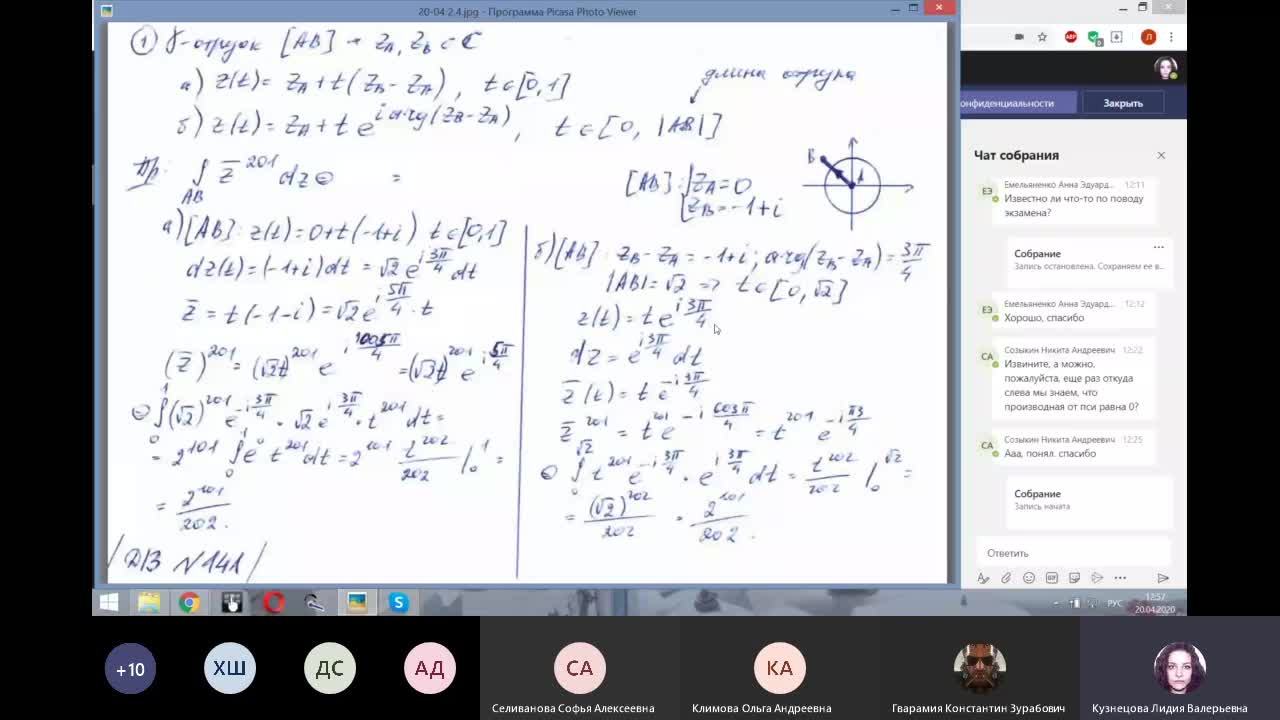 20-04 2.4.jpg - Программа Picasa Photo Viewer
① γ-отрезок [AB] → z_A, z_B ∈ C
а) z(t) = z_A + t(z_B - z_A), t ∈ [0,1]
длина отрезка
б) z(t) = z_A + t e^{i arg(z_B - z_A)}, t ∈ [0, |AB|]
Пр: ∫_{AB} z̄^{201} dz ⊖ =
[AB]: { z_A = 0
z_B = -1+i
B
A
а) [AB]: z(t) = 0+t(-1+i) t ∈ [0,1]
dz(t) = (-1+i)dt = √2 e^{i 3π/4} dt
z̄ = t(-1-i) = √2 e^{i 5π/4} · t
(z̄)^{201} = (√2t)^{201} e^{i 1005π/4} = (√2t)^{201} e^{i 5π/4}
⊖ ∫_0^1 (√2)^{201} e^{-i 3π/4} · √2 e^{i 3π/4} · t^{201} dt =
= 2^{101} ∫_0^1 e^0 t^{201} dt = 2^{101} t^{202}/202 |_0^1 =
= 2^{101}/202.
/ДВ N141/
б) [AB]: z_B - z_A = -1+i; arg(z_B - z_A) = 3π/4
|AB| = √2 => t ∈ [0, √2]
z(t) = t e^{i 3π/4}
dz = e^{i 3π/4} dt
z̄(t) = t e^{-i 3π/4}
z̄^{201} = t^{201} e^{-i 603π/4} = t^{201} e^{-i π3/4}
⊖ ∫_0^{√2} t^{201} e^{-i 3π/4} · e^{i 3π/4} dt = t^{202}/202 |_0^{√2} =
= (√2)^{202}/202 = 2^{101}/202.
онфиденциальности
Закрыть
Чат собрания
ЕЗ
Емельяненко Анна Эдуард... 12:11
Известно ли что-то по поводу
экзамена?
Собрание
Запись остановлена. Сохраняем ее в...
ЕЗ
Емельяненко Анна Эдуард... 12:12
Хорошо, спасибо
СА
Созыкин Никита Андреевич 12:22
Извините, а можно,
пожалуйста, еще раз откуда
слева мы знаем, что
производная от пси равна 0?
СА
Созыкин Никита Андреевич 12:25
Ааа, понял. спасибо
Собрание
Запись начата
Ответить
РУС
12:57
20.04.2020
+10
ХШ
ДС
АД
СА
КА
Селиванова Софья Алексеевна
Климова Ольга Андреевна
Гварамия Константин Зурабович
Кузнецова Лидия Валерьевна